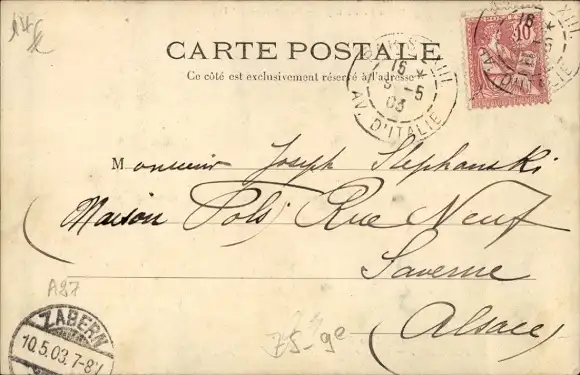 CARTE POSTALE
Ce côté est exclusivement réservé à l'adresse
PARIS XIII
16
5-5
03
AV. D'ITALIE
10
Monsieur Joseph Stephanski
(Maison Pols) Rue Neuf
Saverne
(Alsace)
A87
ZABERN
10.5.03. 7-8V
75-9e